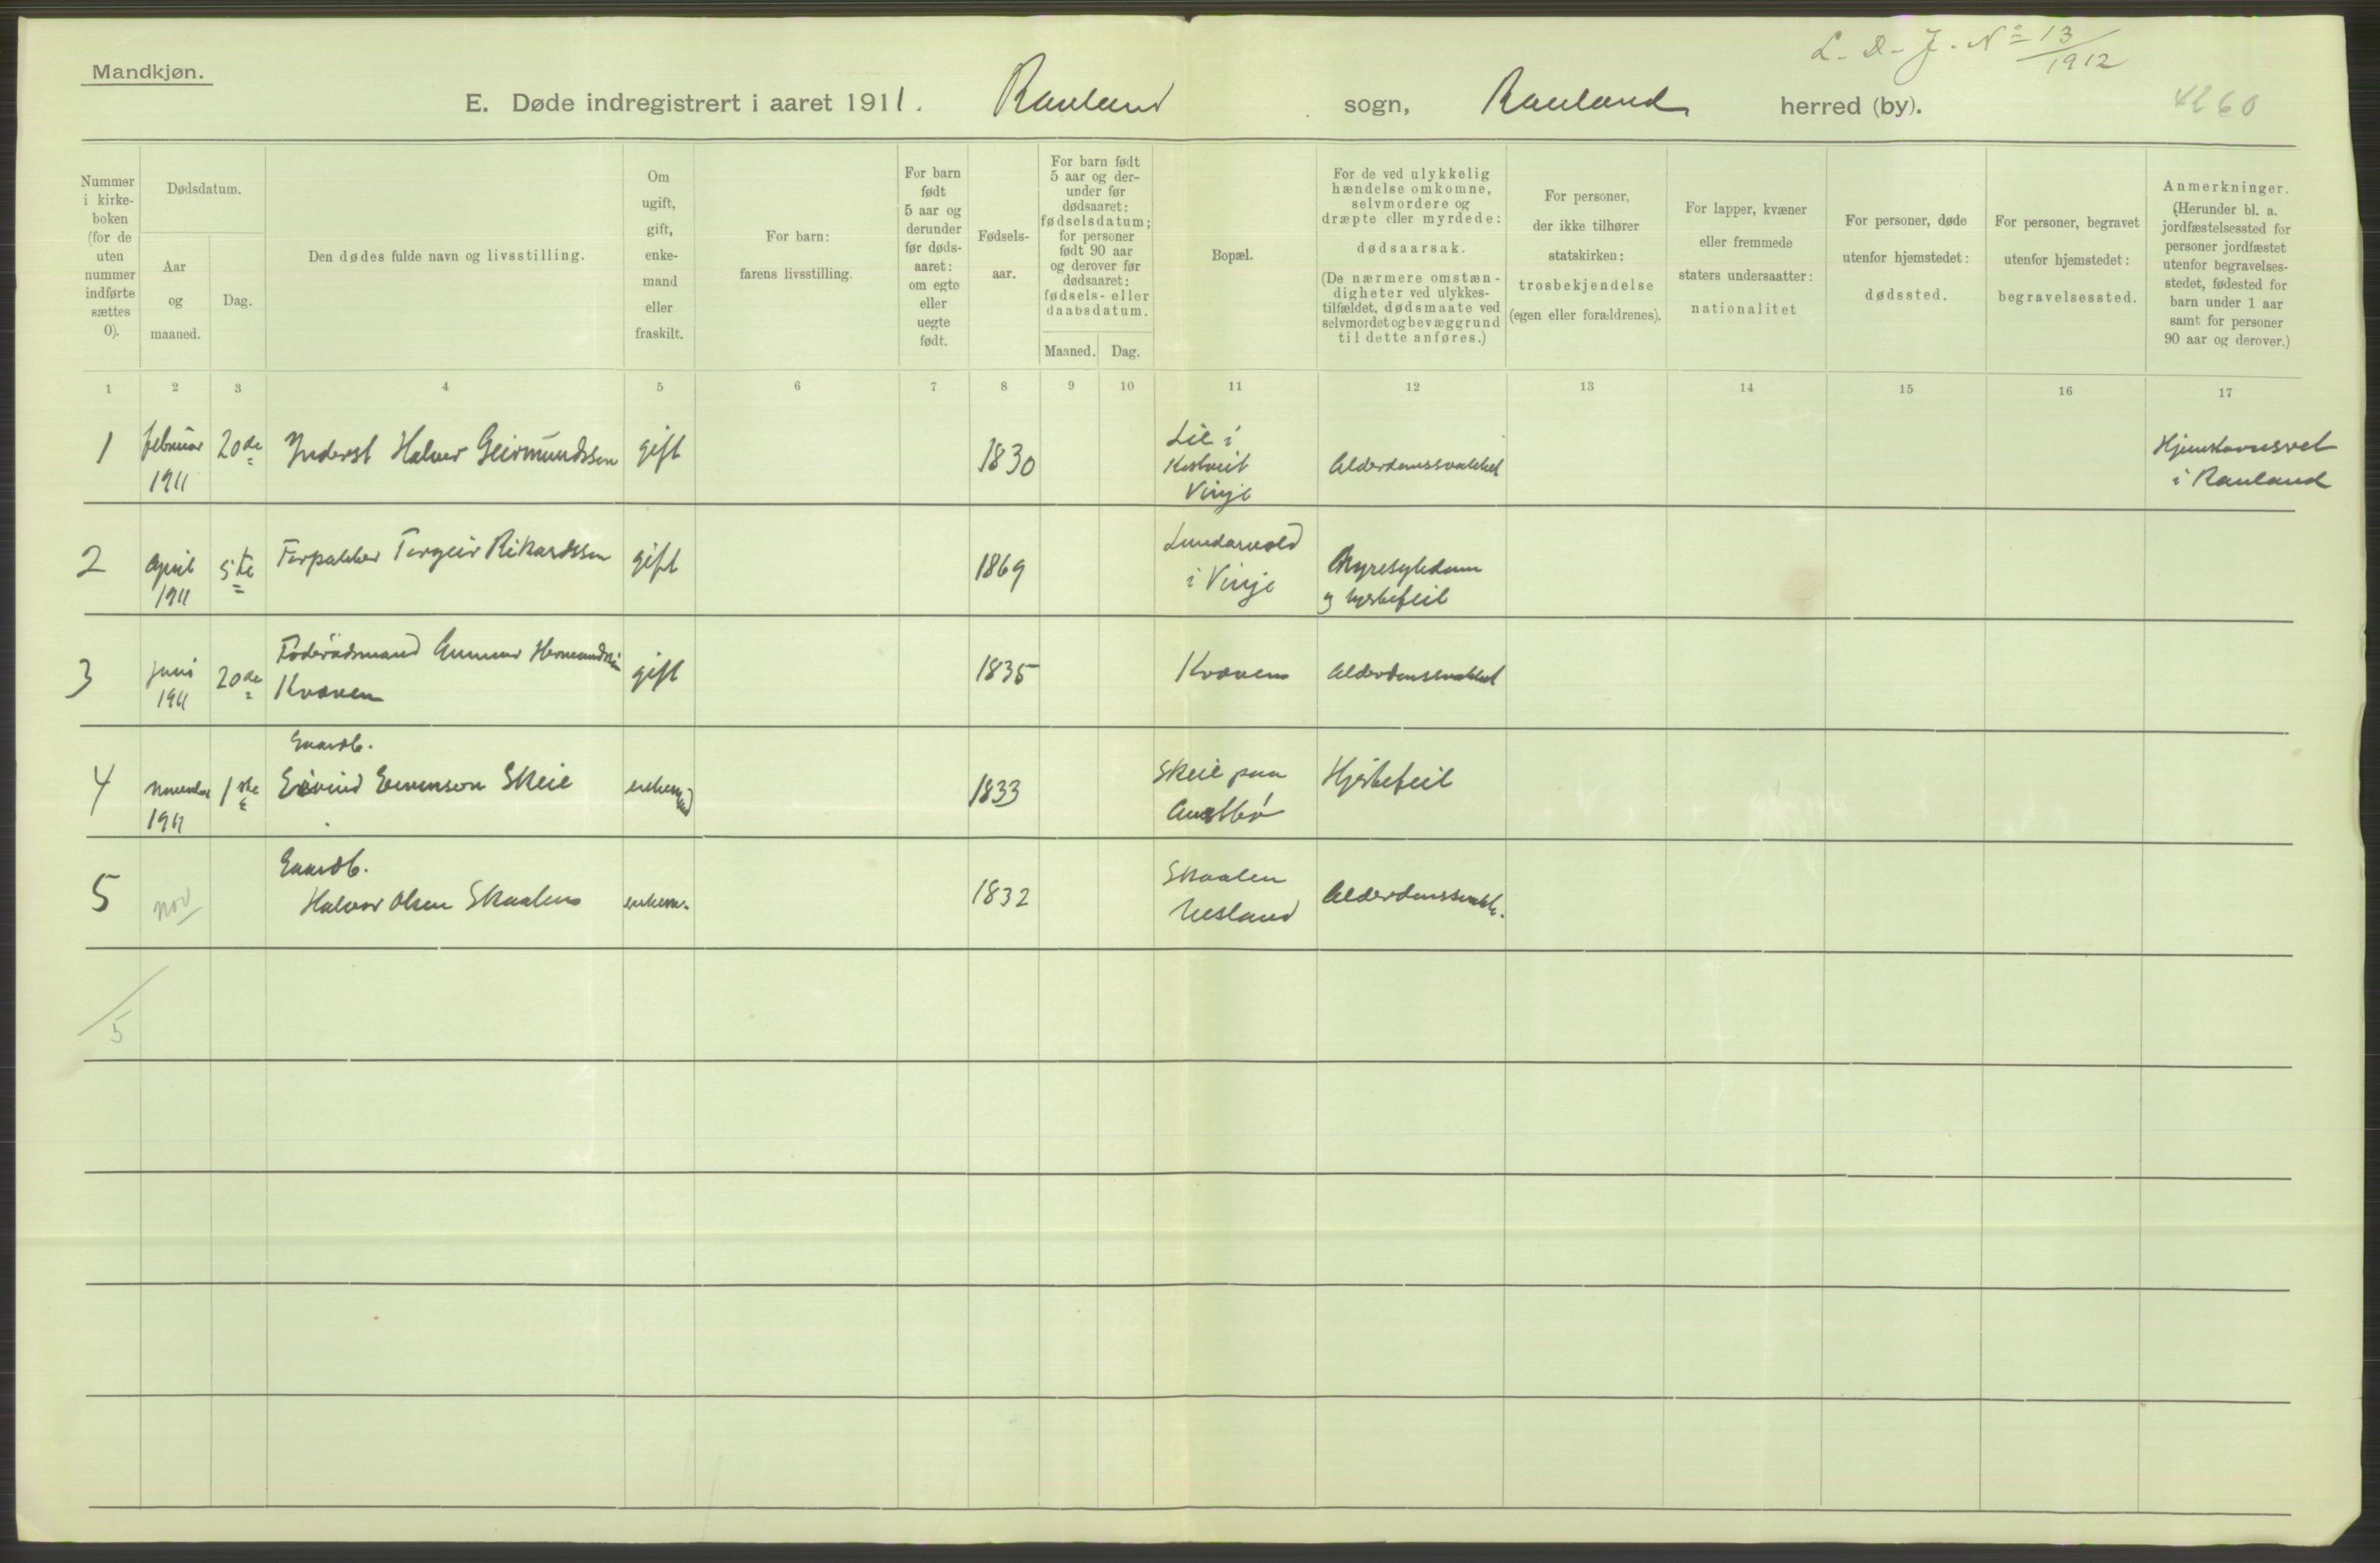 L. D. J. Nº 13/1912
Mandkjøn.
E. Døde indregistrert i aaret 1911. Rauland sogn, Rauland herred (by).
4260
Nummer i kirkeboken (for de uten nummer indførte sættes 0).
Dødsdatum.
Aar og maaned.
Dag.
Den dødes fulde navn og livsstilling.
Om ugift, gift, enkemand eller fraskilt.
For barn: farens livsstilling.
For barn født 5 aar og derunder før dødsaaret: om egte eller uegte født.
Fødselsaar.
For barn født 5 aar og derunder før dødsaaret: fødselsdatum; for personer født 90 aar og derover før dødsaaret: fødsels- eller daabsdatum.
Maaned. Dag.
Bopæl.
For de ved ulykkelig hændelse omkomne, selvmordere og dræpte eller myrdede: dødsaarsak.
(De nærmere omstændigheter ved ulykkestilfældet, dødsmaate ved selvmordet og bevæggrund til dette anføres.)
For personer, der ikke tilhører statskirken: trosbekjendelse (egen eller forældrenes).
For lapper, kvæner eller fremmede staters undersaatter: nationalitet
For personer, døde utenfor hjemstedet: dødssted.
For personer, begravet utenfor hjemstedet: begravelsessted.
Anmerkninger.
(Herunder bl. a. jordfæstelsessted for personer jordfæstet utenfor begravelsesstedet, fødested for barn under 1 aar samt for personer 90 aar og derover.)
1 2 3 4 5 6 7 8 9 10 11 12 13 14 15 16 17
1 februar 1911 20de Inderst Halvor Geirmundssen gift 1830 Lie i Kostveit Vinje Alderdomssvakhet i Rauland
2 April 1911 5te Torgeir Rikardssen gift 1869 i Vinje Nyresykdom og hjertefeil
3 Juni 1911 20de Föderådsmand Gunnar Hermundsen Kvaven gift 1835 Kvaven Alderdomssvakhet
4 November 1911 1ste Gaardb. Eivind Evensen Skeie enkemand 1833 Skeie paa Austbø Hjertefeil
5 nov Gaardb. Halvor Olsen Skaalen enkem. 1832 Skaalen Alderdomssvakh.
5